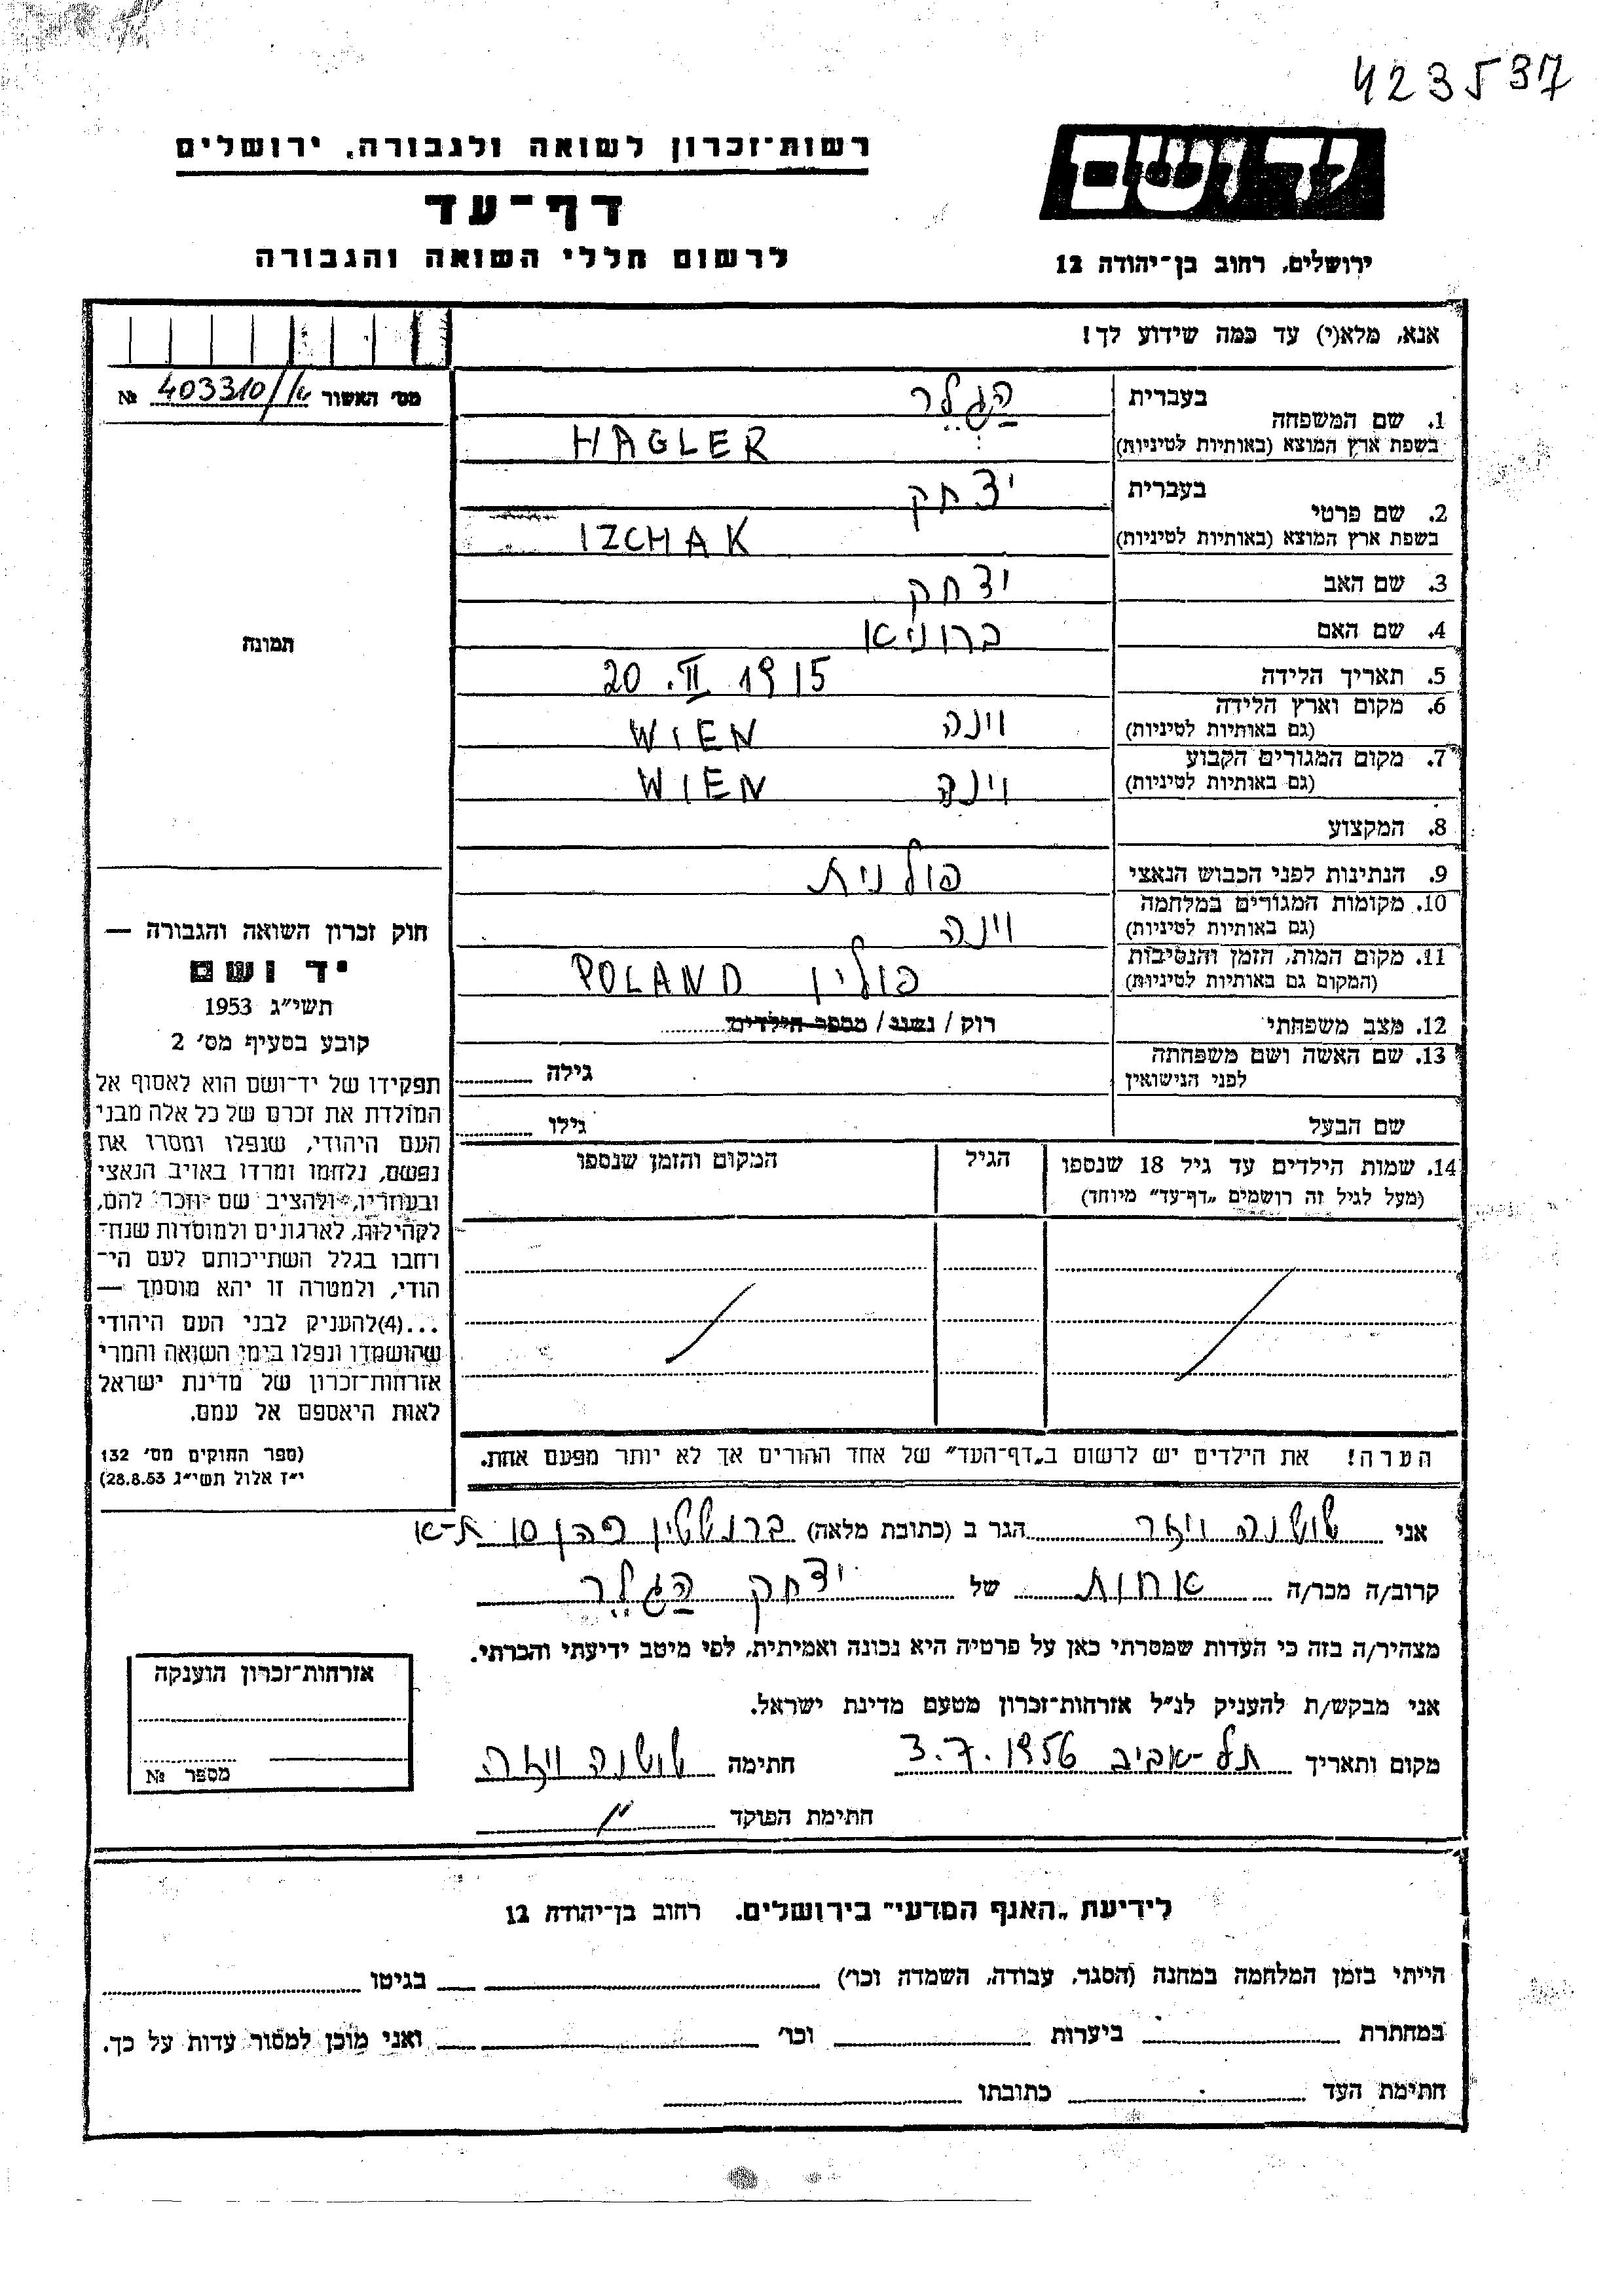 423537
רשות־זכרון לשואה ולגבורה, ירושלים
ידושם
דף־עד
לרשום חללי השואה והגבורה
ירושלים, רחוב בן־יהודה 12
אנא, מלא(י) עד כמה שידוע לך!
מס׳ האשור 403310/ №
1. שם המשפחה בעברית הַגְלֵר
בשפת ארץ המוצא (באותיות לטיניות) HAGLER
2. שם פרטי בעברית יצחק
בשפת ארץ המוצא (באותיות לטיניות) IZCHAK
3. שם האב יצחק
4. שם האם ברוניא
5. תאריך הלידה 20.II 1915
6. מקום וארץ הלידה (גם באותיות לטיניות) וינה WIEN
7. מקום המגורים הקבוע (גם באותיות לטיניות) וינה WIEN
8. המקצוע
9. הנתינות לפני הכבוש הנאצי פולנית
10. מקומות המגורים במלחמה (גם באותיות לטיניות) וינה
11. מקום המות, הזמן והנסיבות (המקום גם באותיות לטיניות) פולין POLAND
12. מצב משפחתי רוק / נשוי / מספר הילדים
13. שם האשה ושם משפחתה לפני הנישואין גילה
שם הבעל גילו
14. שמות הילדים עד גיל 18 שנספו הגיל המקום והזמן שנספו
(מעל לגיל זה רושמים „דף־עד״ מיוחד)
הערה! את הילדים יש לרשום ב„דף־העד״ של אחד ההורים אך לא יותר מפעם אחת.
תמונה
חוק זכרון השואה והגבורה —
יד ושם
תשי״ג 1953
קובע בסעיף מס׳ 2
תפקידו של יד־ושם הוא לאסוף אל
המולדת את זכרם של כל אלה מבני
העם היהודי, שנפלו ומסרו את
נפשם, נלחמו ומרדו באויב הנאצי
ובעוזריו, ולהציב שם וזכר להם,
לקהילות, לארגונים ולמוסדות שנח־
רחבו בגלל השתייכותם לעם הי־
הודי, ולמטרה זו יהא מוסמך —
...(4)להעניק לבני העם היהודי
שהושמדו ונפלו בימי השואה והמרי
אזרחות־זכרון של מדינת ישראל
לאות היאספם אל עמם.
(ספר החוקים מס׳ 132
י״ז אלול תשי״ג 28.8.53)
אני שושנה ויזר הגר ב (כתובת מלאה) ברנשטין כהן 10 ת-א
קרוב/ה מכר/ה אחות של יצחק הַגְלֵר
מצהיר/ה בזה כי העדות שמסרתי כאן על פרטיה היא נכונה ואמיתית, לפי מיטב ידיעתי והכרתי.
אני מבקש/ת להעניק לנ״ל אזרחות־זכרון מטעם מדינת ישראל.
מקום ותאריך תל-אביב 3.7.1956 חתימה שושנה ויזר
חתימת הפוקד
אזרחות־זכרון הוענקה
מספר №
לידיעת „האגף המדעי״ בירושלים. רחוב בן־יהודה 12
הייתי בזמן המלחמה במחנה (הסגר, עבודה, השמדה וכו׳) בגיטו
במחתרת ביערות וכו׳ ואני מוכן למסור עדות על כך.
חתימת העד כתובתו